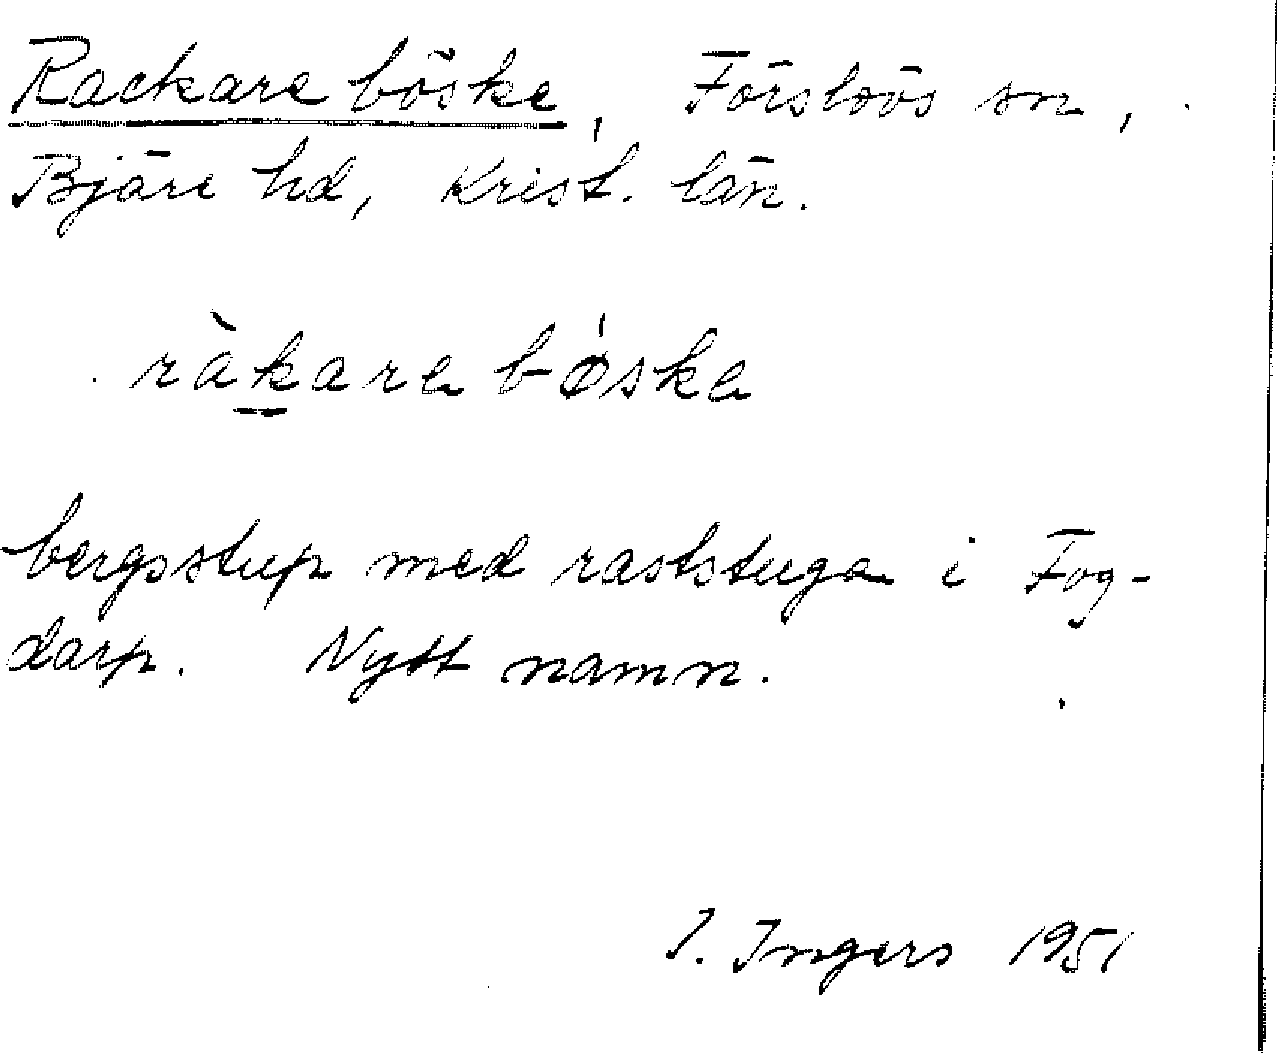 Rackare böske, Förslövs sn,
Bjäre hd, Krist. län.
ràkare bǿska
bergsstup med raststuga i Fog-
darp. Nytt namn.
I. Ingers 1951